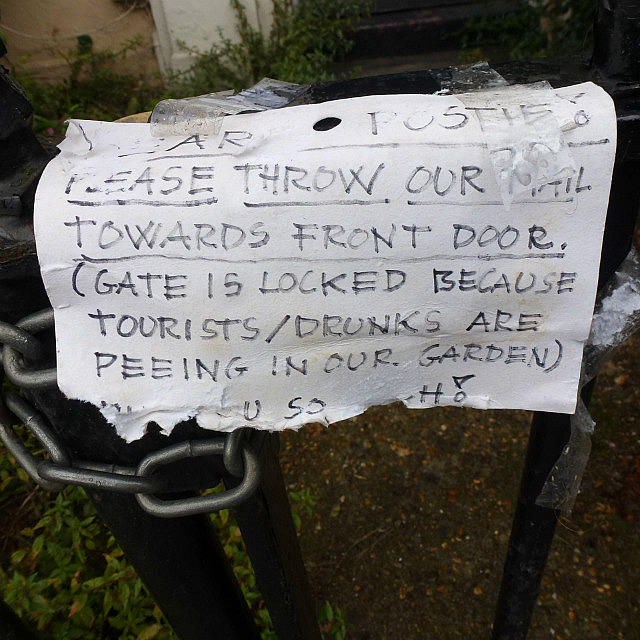 POSTIE
PLEASE THROW OUR MAIL
TOWARDS FRONT DOOR.
(GATE IS LOCKED BECAUSE
TOURISTS/DRUNKS ARE
PEEING IN OUR GARDEN)
SO